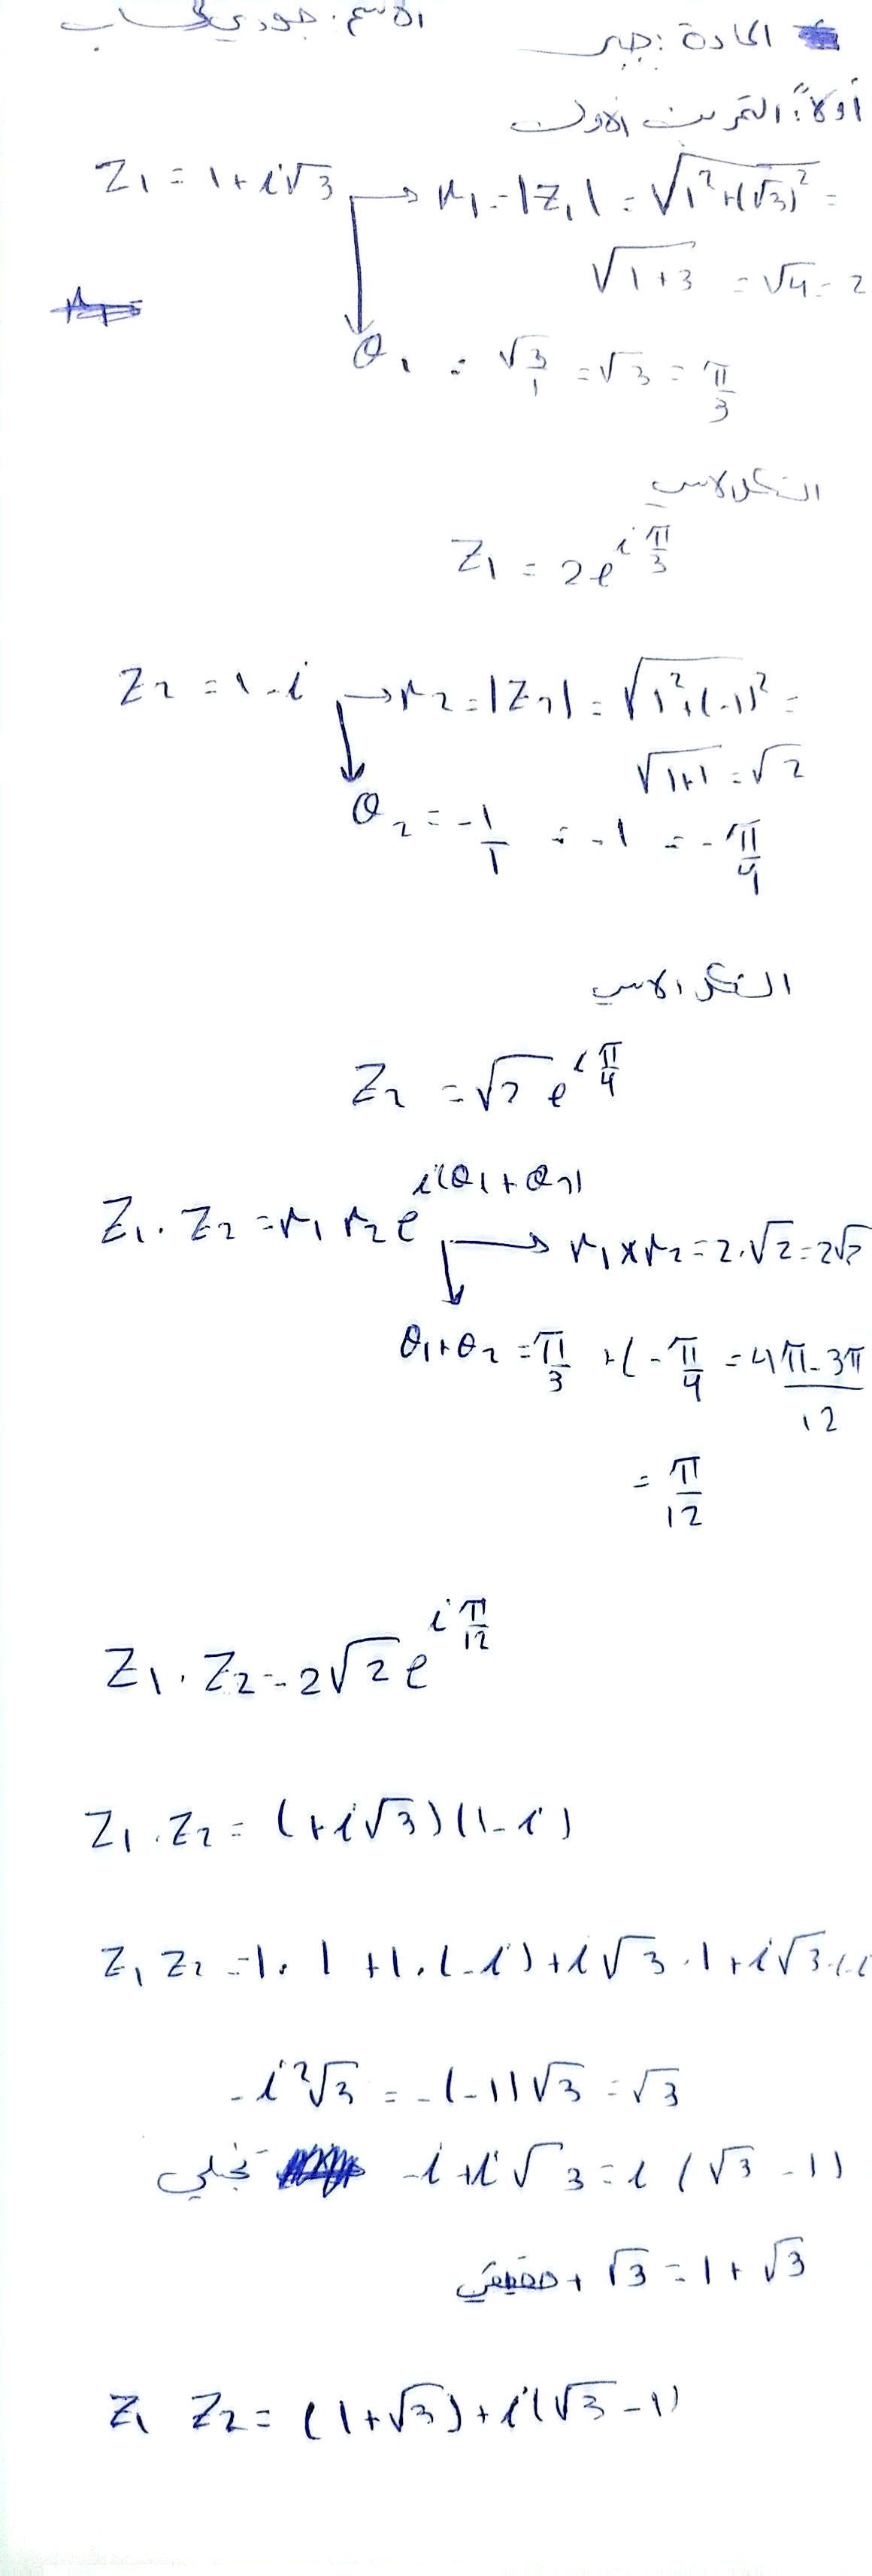 المادة: جبر الاسم: جودي
أولاً: التمرين الاول
Z₁ = 1 + i√3 → r₁ = |Z₁| = √(1² + (√3)²) =
√(1+3) = √4 = 2
θ₁ = √3/1 = √3 = π/3
الشكل الاسي
Z₁ = 2e^(i π/3)
Z₂ = 1 - i → r₂ = |Z₂| = √(1² + (-1)² =
√(1+1) = √2
θ₂ = -1/1 = -1 = -π/4
الشكل الاسي
Z₂ = √2 e^(i π/4)
Z₁ . Z₂ = r₁ r₂ e^(i(θ₁ + θ₂)) → r₁ × r₂ = 2.√2 = 2√2
θ₁ + θ₂ = π/3 + (-π/4 = (4π - 3π)/12
= π/12
Z₁ . Z₂ = 2√2 e^(i π/12)
Z₁ . Z₂ = (+i√3)(1-i)
Z₁ Z₂ = 1 . 1 + 1 . (-i) + i√3 . 1 + i√3 . (-i
-i²√3 = -(-1)√3 = √3
تخيلي -i + i√3 = i(√3 - 1)
حقيقي + √3 = 1 + √3
Z₁ Z₂ = (1+√3) + i(√3 - 1)